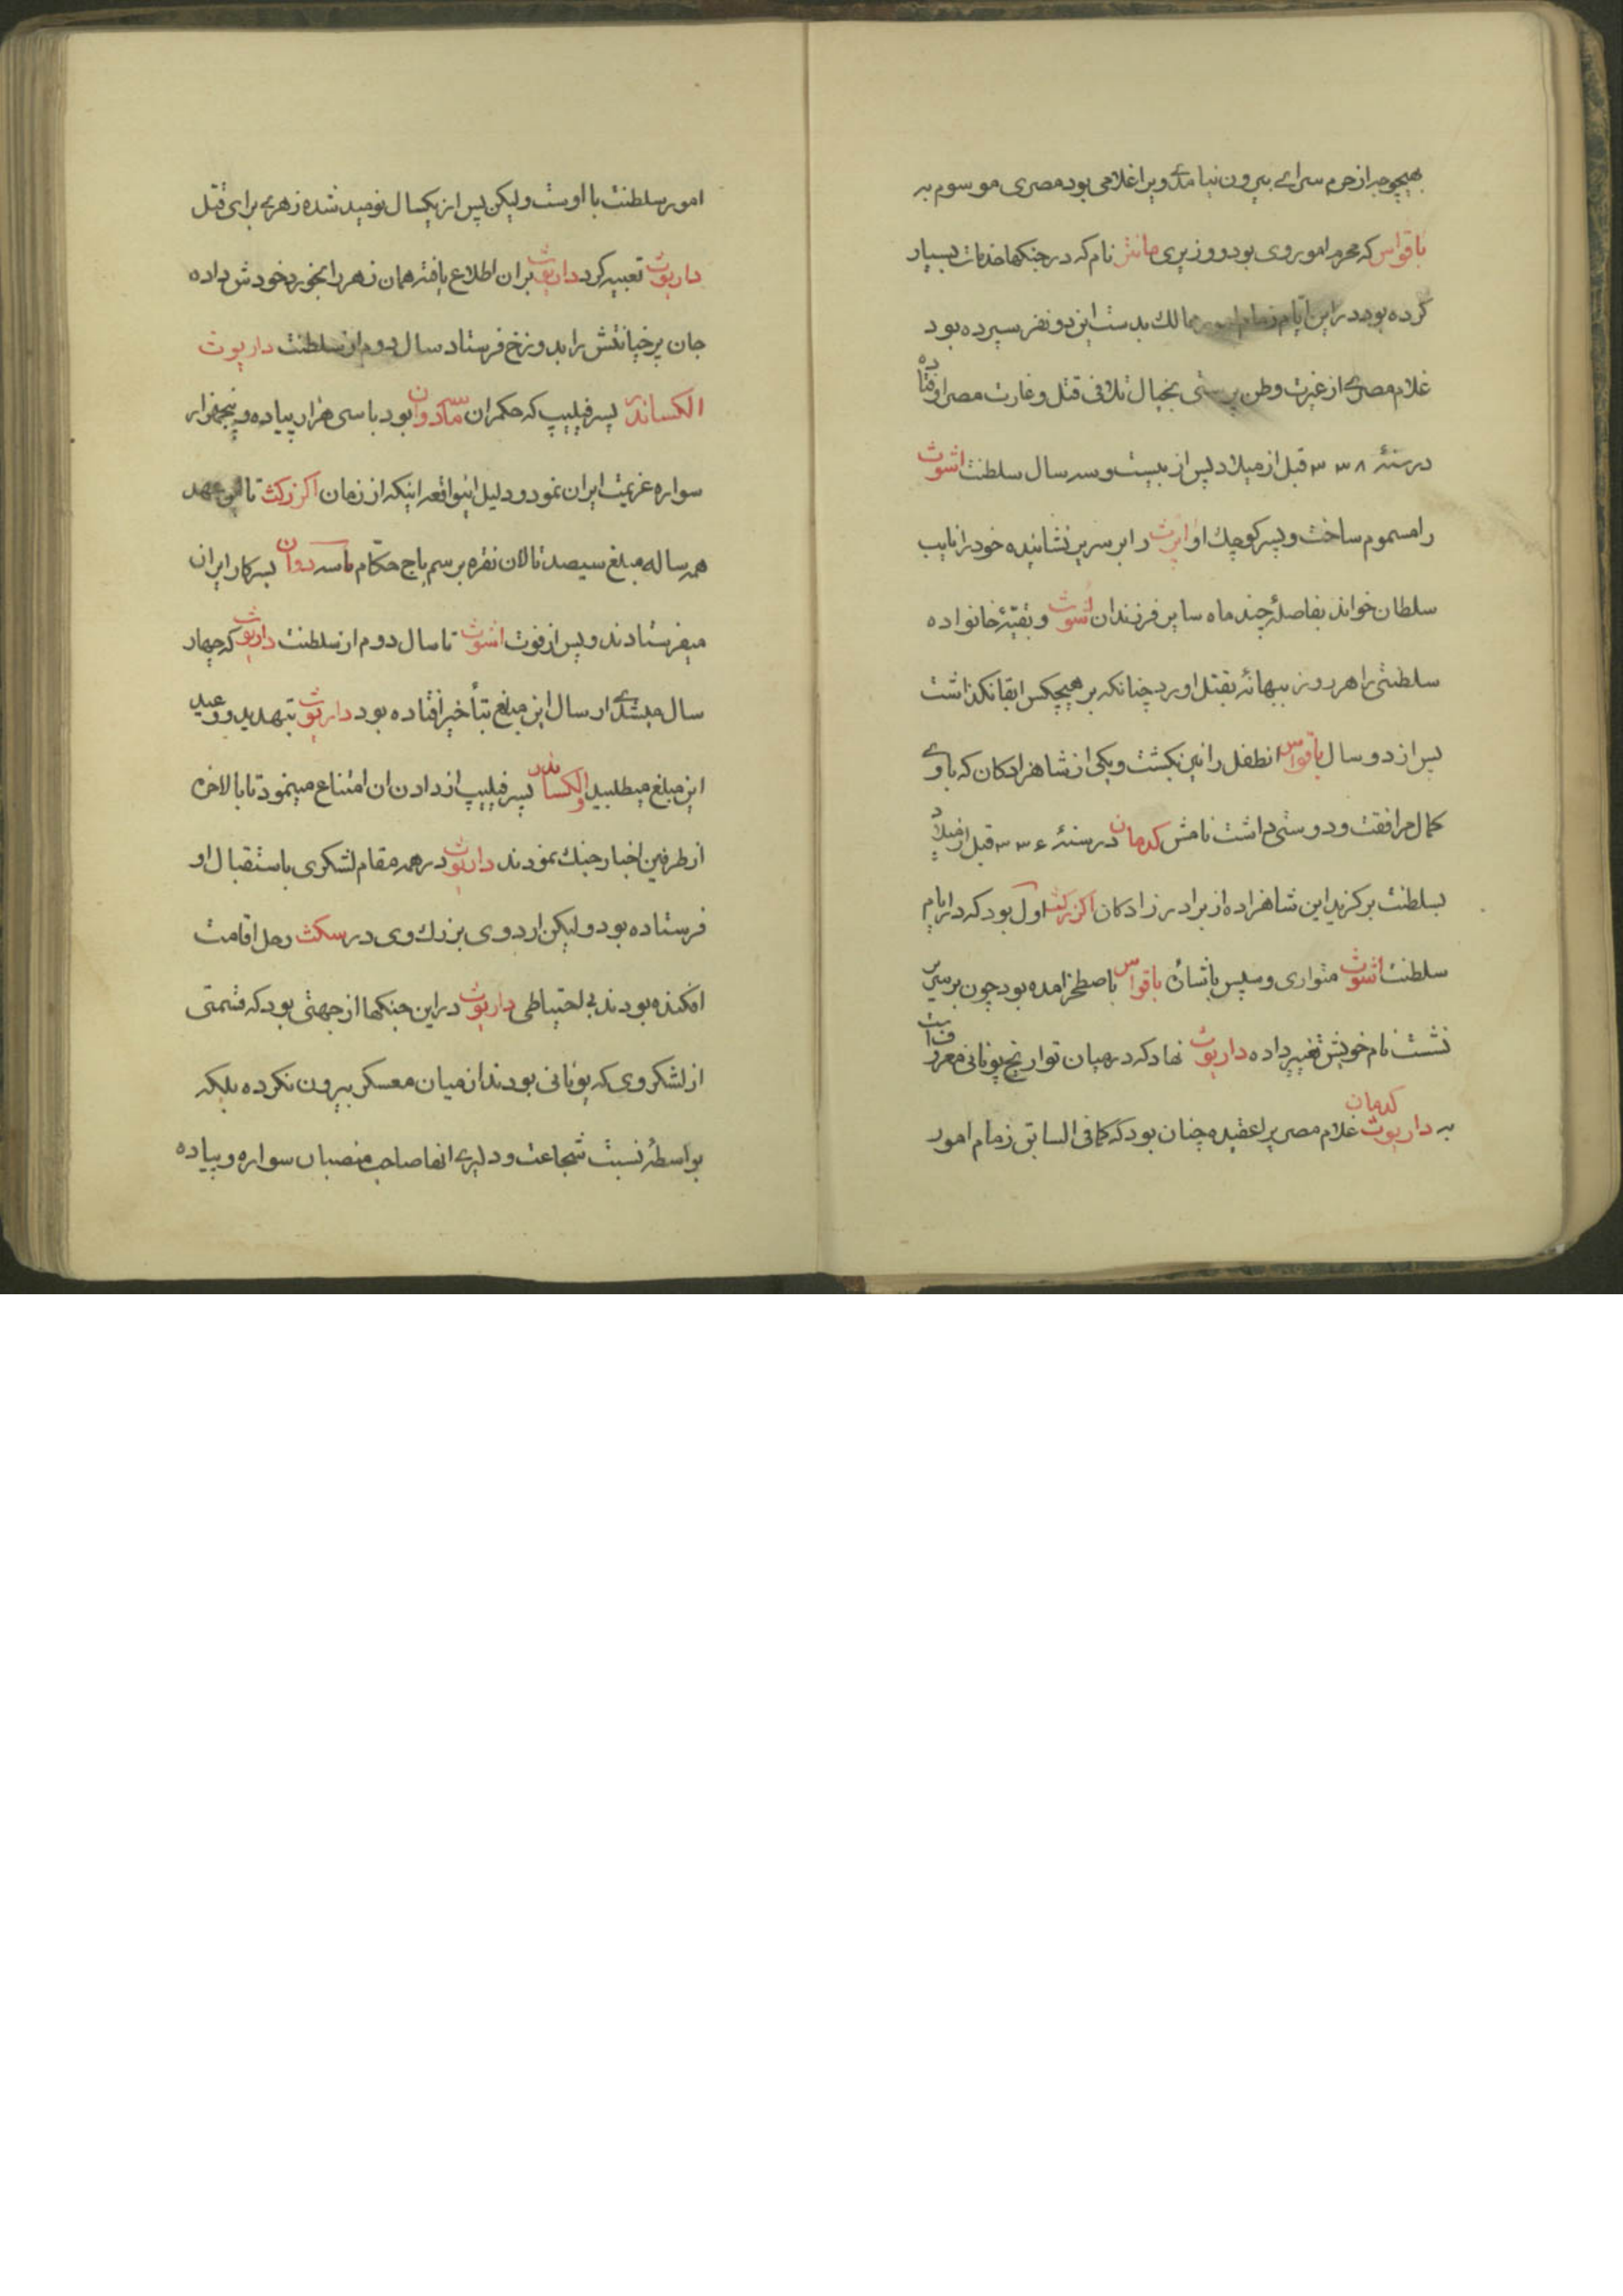 بهیچوجه از حرم سرای بیرون نیامدی ویرا غلامی بود مصری موسوم به
باقواس که محرم امور وی بود و وزیری مانتر نام که در جنکها خدمات بسیار
کرده بود در این ایام زمام امور ممالک بدست این دو نفر سپرده بود
غلام مصری از غیرت وطن پرستی بخیال تلافی قتل و غارت مصر افتاده
در سنهٔ ۳۳۸ قبل از میلاد پس از بیست و سه سال سلطنت اشوث
را مسموم ساخت و پسر کوچک او ارث را بر سریر نشانیده خود را نایب
سلطان خواند بفاصلهٔ چند ماه سایر فرزندان اشوث و بقیهٔ خانواده
سلطنتی را هر روز ببهانهٔ بقتل اورد چنانکه بر هیچکس ابقا نکذاشت
پس از دو سال باقواس انطفل را نیز بکشت و یکی از شاهزادکان که با وی
کمال مرافقت و دوستی داشت نامش کدمان در سنهٔ ۳۳۶ قبل از میلاد
بسلطنت برکزید این شاهزاده از برادر زادکان اکزرکث اول بود که در ایام
سلطنت اشوث متواری و سپس باشارهٔ باقواس باصطخر امده بود چون بر سریر
نشست نام خویش تغییر داده داریوث نهاد که در میان تواریخ یونانی معروفست
به داریوث کدمان غلام مصری را عقیده چنان بود که کما فی السابق زمام امور
امور سلطنت با اوست ولیکن پس از یکسال نومید شده زهری برای قتل
داریوث تعبیه کرد داریوث بر ان اطلاع یافته همان زهر را بخورد خودش داده
جان پر خیانتش را بدوزخ فرستاد سال دوم از سلطنت داریوث
الکساندر پسر فیلیپ که حکمران ماسدوان بود با سی هزار پیاده و پنجهزار
سواره عزیمت ایران نمود و دلیل اینواقعه اینکه از زمان اکزرکث تا این عهد
همه ساله مبلغ سیصد تالان نقره برسم باج حکام ماسدوان بسرکار ایران
میفرستادند و پس از فوت اشوث تا سال دوم از سلطنت داریوث که چهار
سال میشدی ارسال این مبلغ بتأخیر افتاده بود داریوث بتهدید و وعید
این مبلغ میطلبید و الکساندر پسر فیلیپ از دادن ان امتناع مینمود تا بالاخره
از طرفین اخبار جنک نمودند داریوث در همه مقام لشکری باستقبال او
فرستاده بود ولیکن اردوی بزرک وی در سکث رحل اقامت
افکنده بودند بی احتیاطی داریوث در این جنکها از جهتی بود که قسمتی
از لشکر وی که یونانی بودند از میان معسکر بیرون نکرده بلکه
بواسطهٔ نسبت شجاعت و دلیری انها صاحب منصبان سواره و پیاده